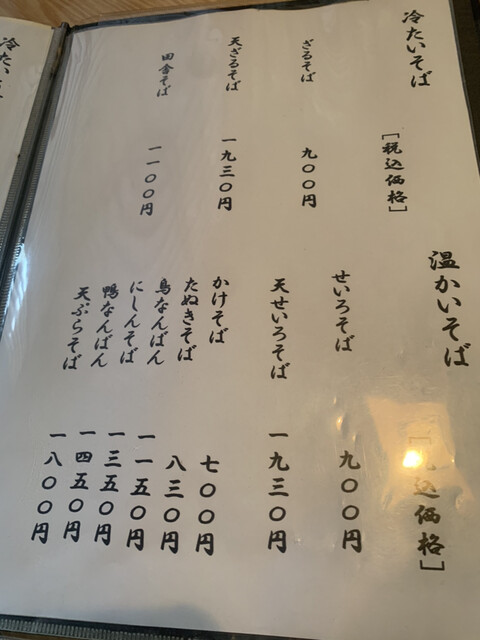 冷たいそば
[税込価格]
ざるそば 九〇〇円
天ざるそば 一九三〇円
田舎そば 一一〇〇円
温かいそば
[税込価格]
せいろそば 九〇〇円
天せいろそば 一九三〇円
かけそば 七〇〇円
たぬきそば 八三〇円
鳥なんばん 一一五〇円
にしんそば 一三五〇円
鴨なんばん 一四五〇円
天ぷらそば 一八〇〇円
冷たい